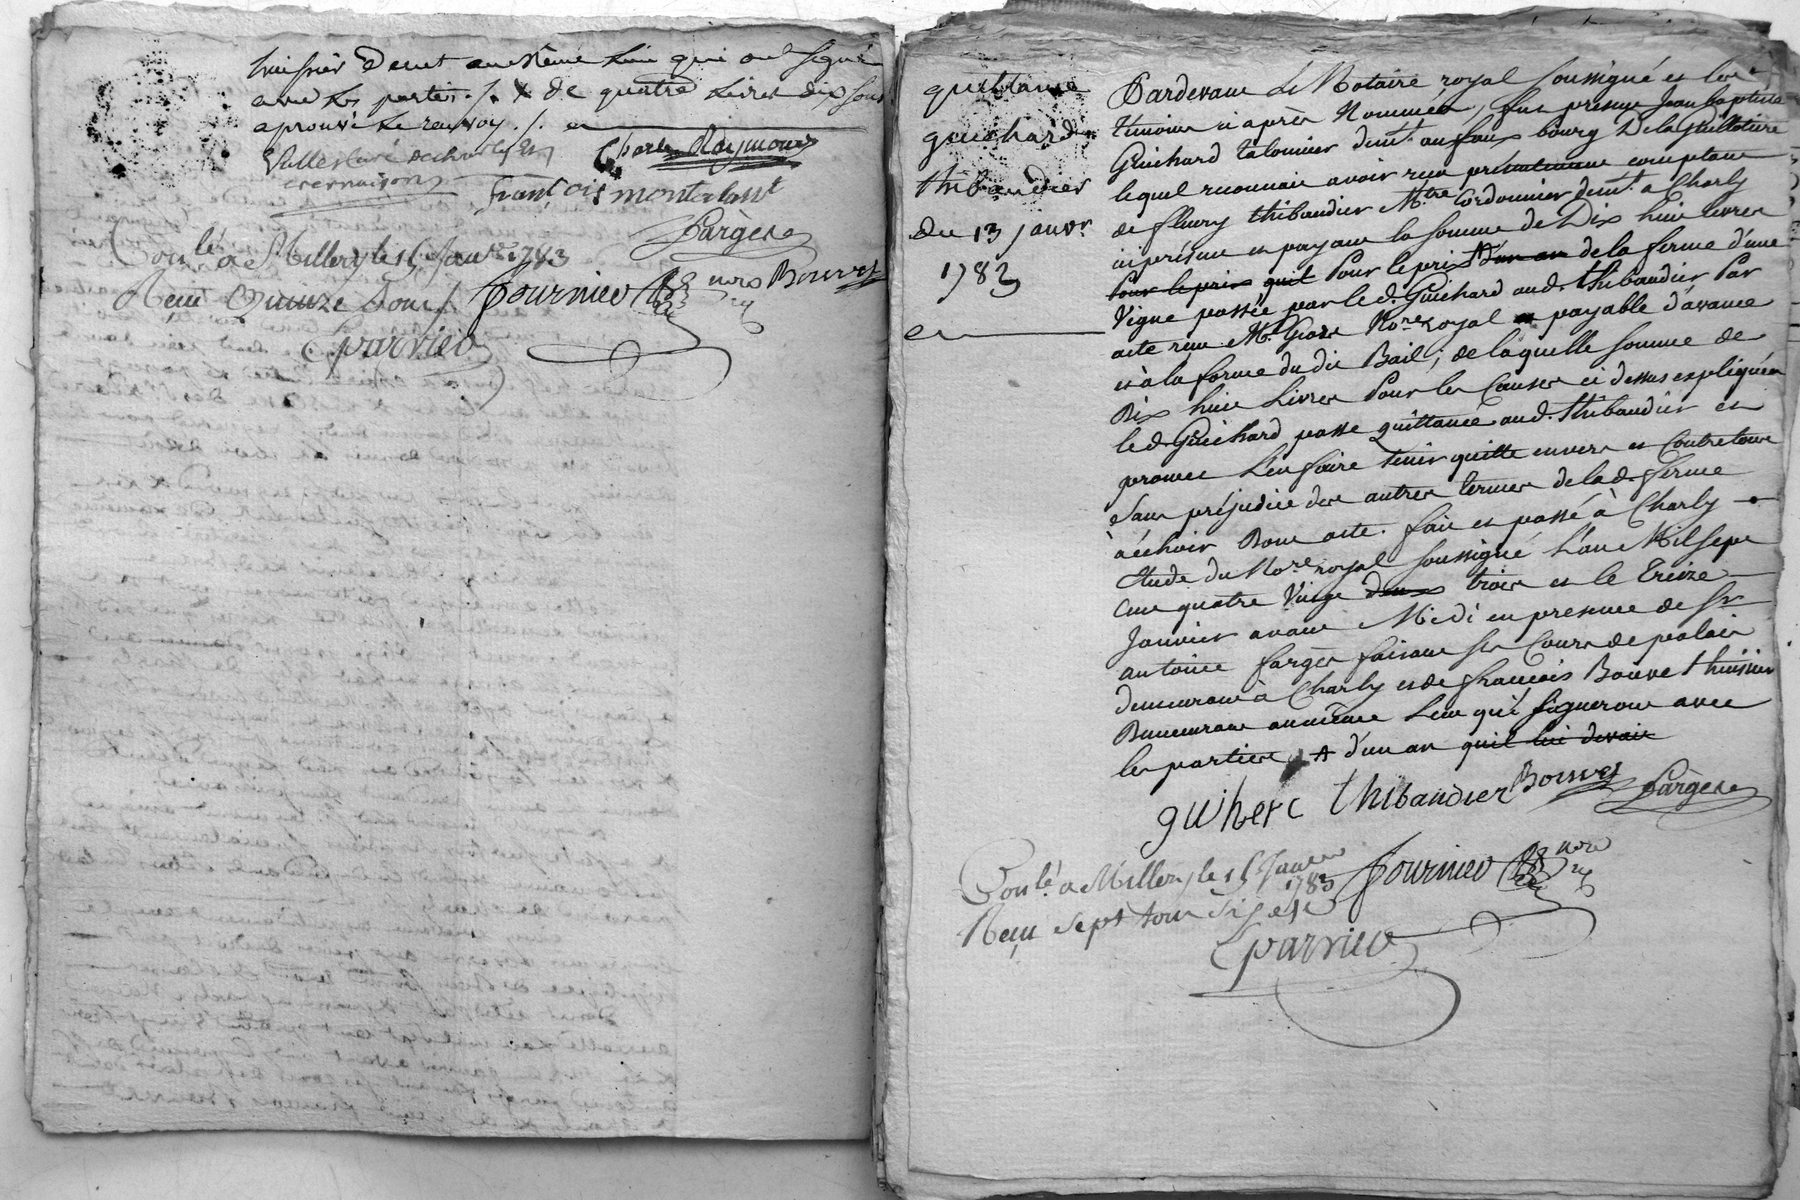 huissier demt au même lieu qui ont signé
avec les parties ./. X de quatre Livres dix sous
aprouvé le renvoy ./.
Charle Raymond
francois montaland
fargere
Conlé a Millery le 15 Janv. 1783
Bouvet
Reçu Quinze sous
fournier nore
Parrieu
quittance
guichard
thibaudier
du 13 janvr
1783
Pardevant le Notaire royal soussigné et les
temoins ci après Nommés, fut présent Jean baptiste
Guichard talonnier demt. au faux bourg de la Guillotiere
lequel reconnait avoir reçu présentement comptant
de fleury thibaudier Mtre Cordonnier demt. a Charly
ici présent et payant la somme de Dix huit livres
pour le prix quil pour le prix A d'un an de la ferme d'une
Vigne passée par led. Guichard aud. thibaudier par
acte reçu Me Nore. royal payable d'avance
et à la forme du dit Bail; de laquelle somme de
Dix huit Livres pour les Causes ci dessus expliquées
led. Guichard passe quittance aud. thibaudier et
promet L'en faire tenir quitte envers et Contre tous
sans préjudice des autres termes de lad. ferme
à échoir Dont acte. fait et passé à Charly
étude du Nore. royal soussigné L'an Mil sept
cent quatre Vingt deux trois et le treize
Janvier avant Midi en presence de Sr
antoine fargere faisant ses Cours de palais
demeurant à Charly et de francois Bouvet huissier
Demeurant au même Lieu qui signeront avec
les parties A d'un an quil lui devait
guiherc thibaudier Bouvet fargere
Conlé a Millery le 15 Janvier
1783 fournier nore
Reçu sept sous six d.
Parrieu